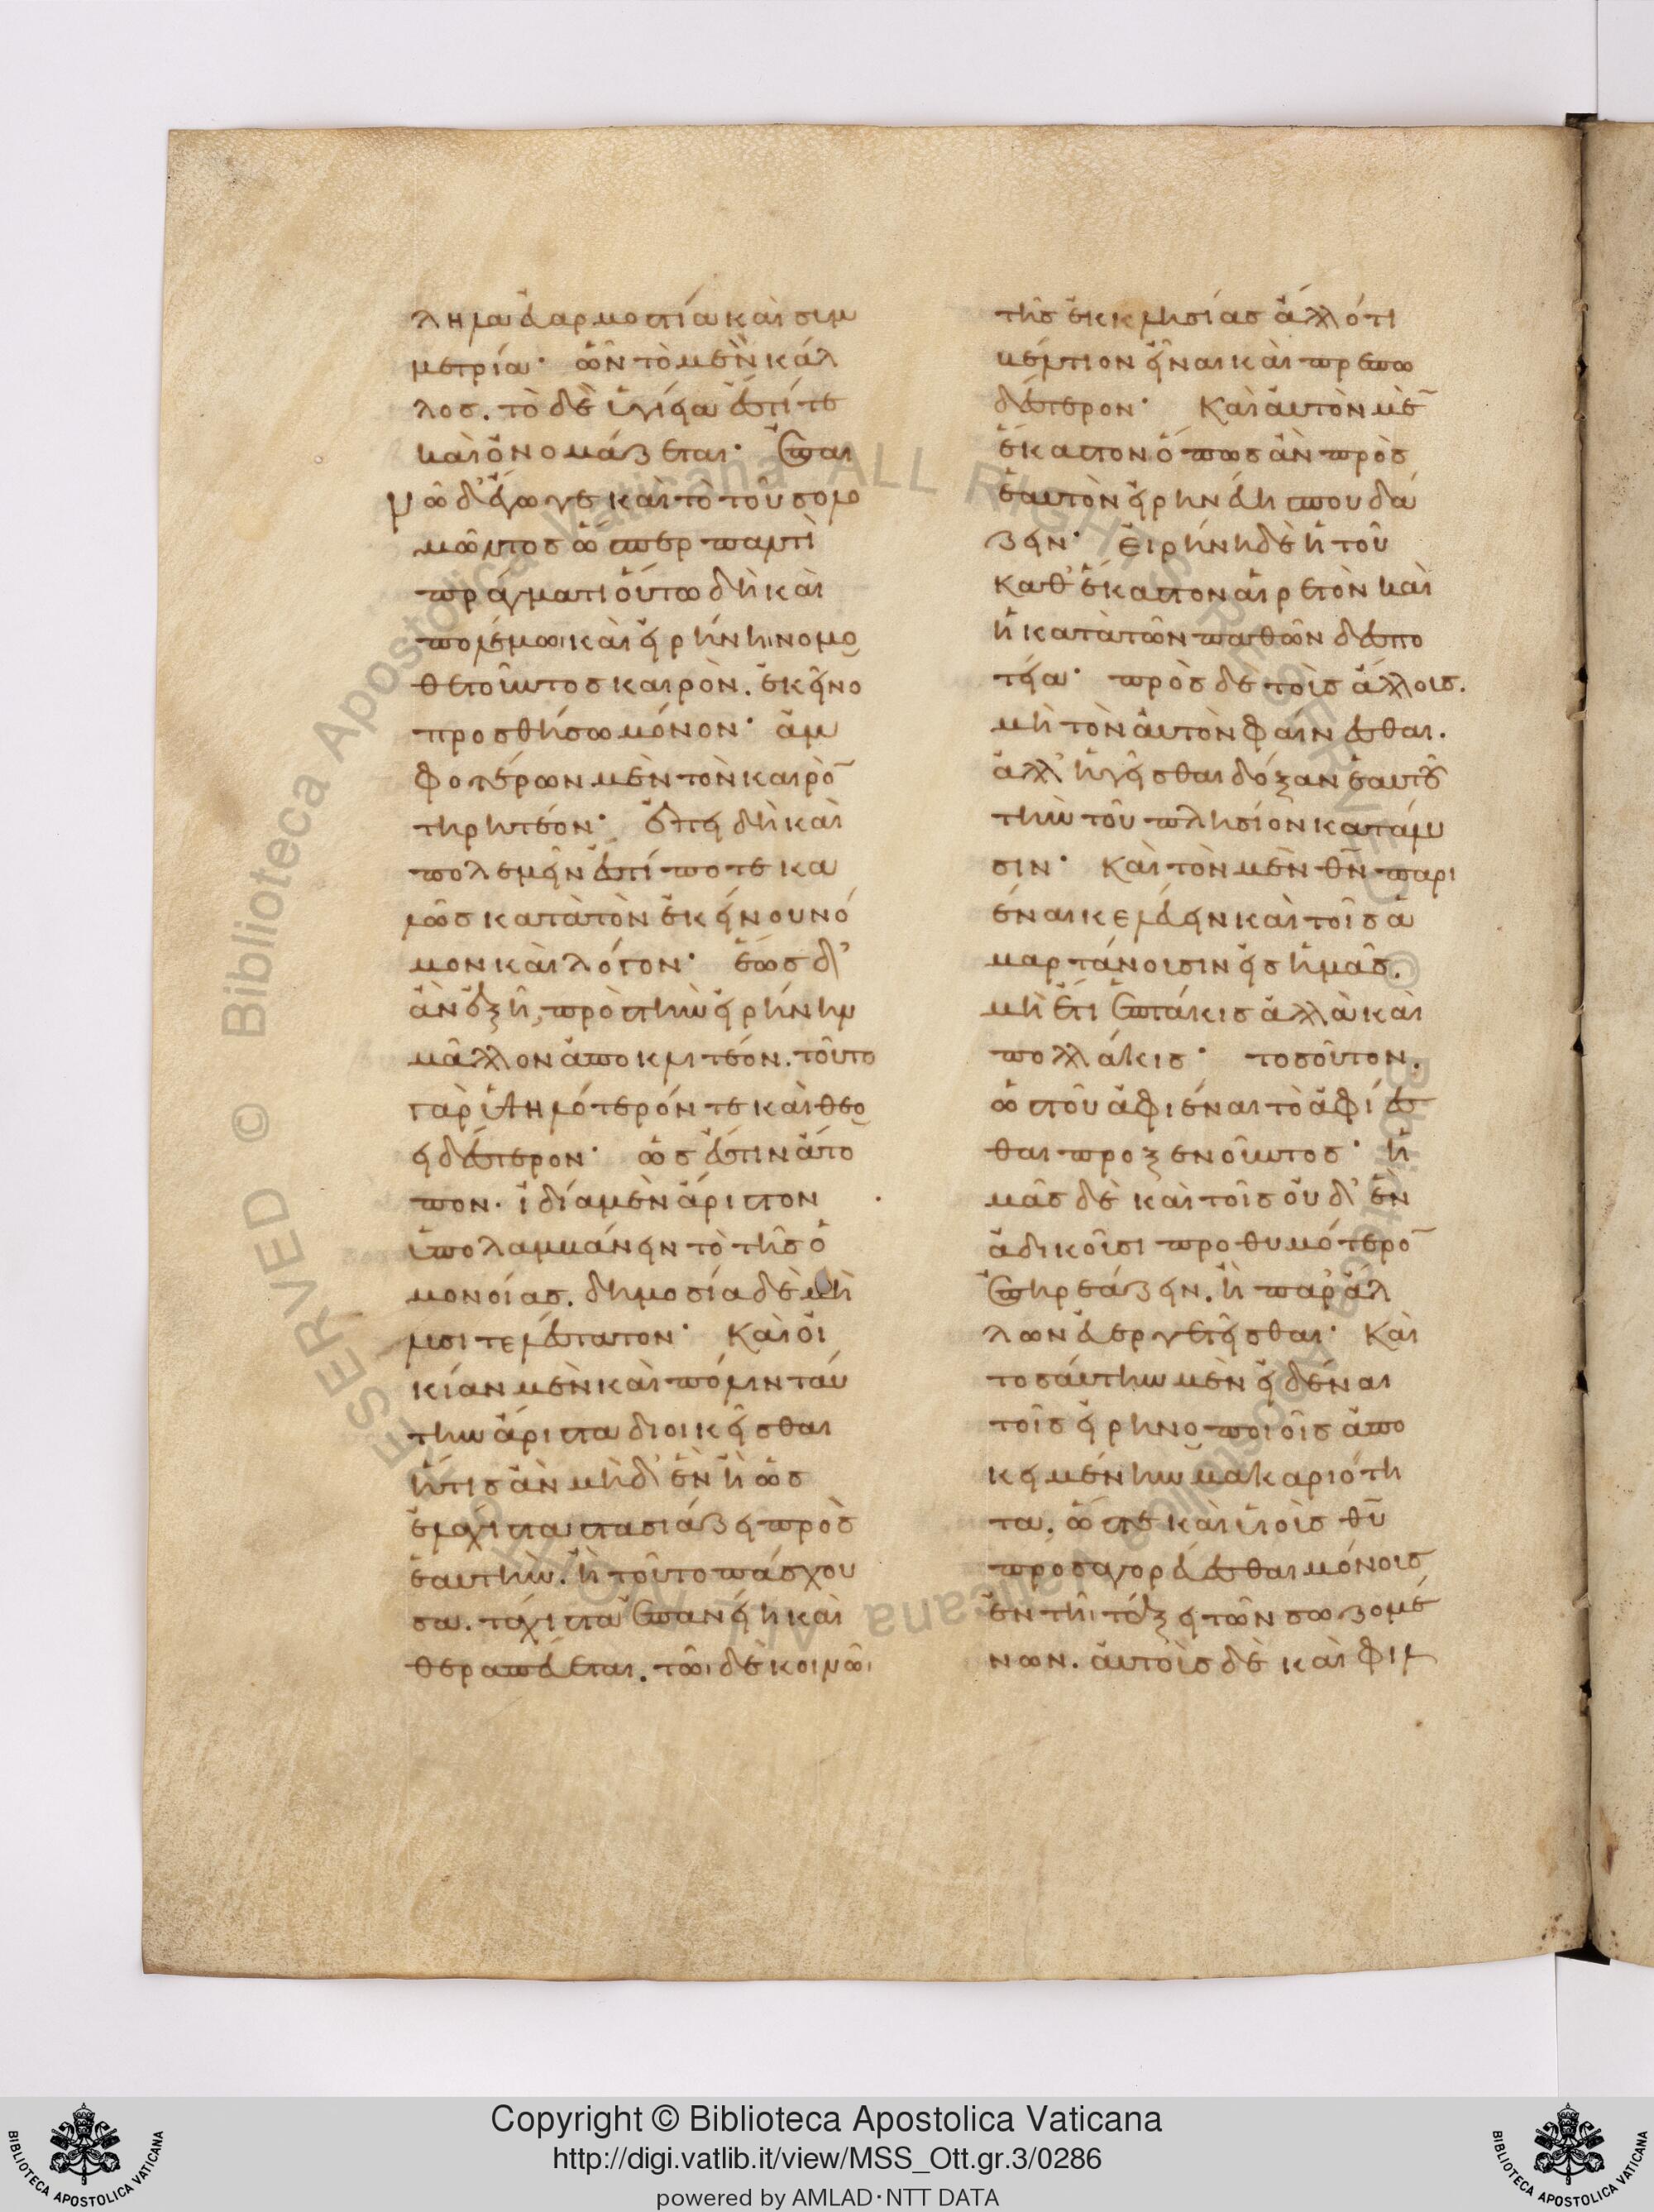 λημα εὐαρμοστία καὶ συμ
μετρία· ὧν τὸ μὲν κάλ
λος. τὸ δὲ ὑγίεια ἐστί τε
καὶ ὀνομάζεται· ἐπαι
νῶ δ' ἔγωγε καὶ τὸ τοῦ σολο
μῶντος ὥσπερ παντὶ
πράγματι οὕτω δὴ καὶ
πολέμωι καὶ εἰρήνηι νομο
θετοῦντος καιρὸν. ἐκεῖνο
προσθήσω μόνον· ἀμ
φοτέρων μὲν τὸν καιρὸ̄
τηρητέον· ἐπειδὴ καὶ
πολεμεῖν ἐστί ποτε κα
λῶς κατὰ τὸν ἐκείνου νό
μον καὶ λόγον· ἕως δ'
ἂν ἐξῆ, πρὸς τὴν εἰρήνην
μᾶλλον ἀποκλιτέον. τοῦτο
γὰρ ὑψηλότερόν τε καὶ θεο
ειδέστερον· ὡς ἔστιν ἄτο
πον. ἰδία μὲν ἄριστον
ὑπολαμβάνειν τὸ τῆς ὁ
μονοίας. δημοσία δὲ μὴ
λυσιτελέστατον· Καὶ οἰ
κίαν μὲν καὶ πόλιν ταύ
την ἄριστα διοικεῖσθαι
ἥτις ἂν μηδ' ἐν ἢ ὡς
ἐλάχιστα στασιάζει πρὸς
ἑαυτὴν. ἢ τοῦτο πάσχου
σα. τάχιστα ἐπανείη καὶ
θεραπεύεται. τῶι δὲ κοινῶι
τῆς ἐκκλησίας ἄλλό τι
βέλτιον εἶναι καὶ πρεπω
δέστερον· Καὶ αὐτὸν μὲ̄
ἕκαστον ὅπως ἂν πρὸς
ἑαυτὸν εἰρηνεύη σπουδά
ζειν· εἰρήνη δὲ ἡ τοῦ
καθ' ἕκαστον αἱρετὸν καὶ
ἡ κατὰ τῶν παθῶν δεσπο
τεία· πρὸς δὲ τοῖς ἄλλοις.
μὴ τὸν αὐτὸν φαίνεσθαι.
ἀλλ' ἡγεῖσθαι δόξαν ἑαυτοῦ
τὴν τοῦ πλησίον κατάλυ
σιν· Καὶ τὸν μὲν θ̄ν̄ παρι
έναι κελεύειν καὶ τοῖς ἁ
μαρτάνουσιν εἰς ἡμᾶς.
μὴ ἔτι ἑπτάκις ἀλλὰ καὶ
πολλάκις· τοσοῦτον.
ὡς τοῦ ἀφιέναι τὸ ἀφίεσ
θαι προξενοῦντος· ἡ
μᾶς δὲ καὶ τοῖς οὐδ' ἐν
ἀδικοῦσι προθυμότερο̄
ἐπηρεάζειν. ἢ παρ' ἄλ
λων εὐεργετεῖσθαι· Καὶ
τοσαύτην μὲν εἰδέναι
τοῖς εἰρηνοποιοῖς ἀπο
κειμένην μακαριότη
τα. ὥστε καὶ υἱοῖς θ̄ῡ
προσαγορεύεσθαι μόνοις
ἐν τῆ τάξει τῶν σωζομέ
νων. αὐτοὺς δὲ καὶ φιλ
Copyright © Biblioteca Apostolica Vaticana
http://digi.vatlib.it/view/MSS_Ott.gr.3/0286
powered by AMLAD·NTT DATA